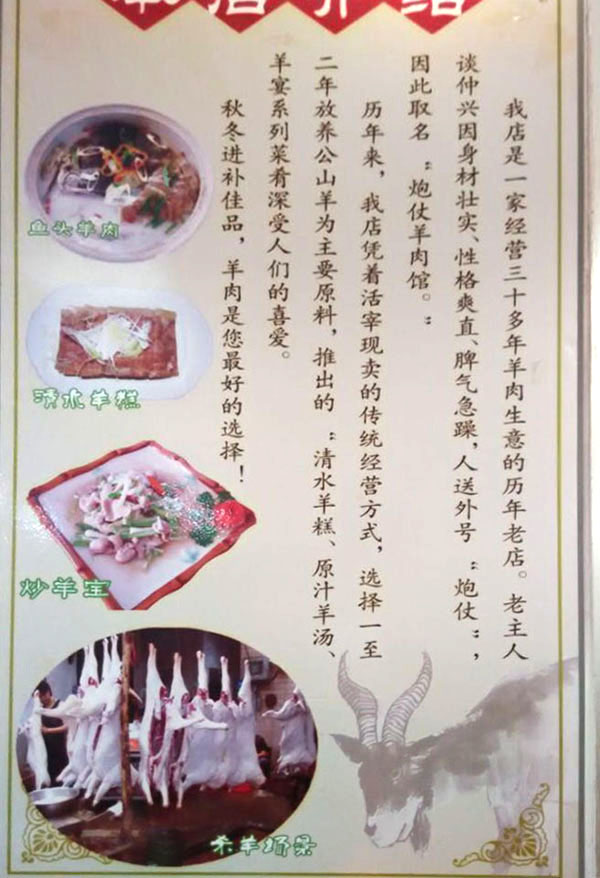 本店介绍
我店是一家经营三十多年羊肉生意的历年老店。老主人
谈仲兴因身材壮实、性格爽直、脾气急躁,人送外号“炮仗”,
因此取名“炮仗羊肉馆。”
历年来,我店凭着活宰现卖的传统经营方式,选择一至
二年放养公山羊为主要原料,推出的“清水羊糕、原汁羊汤、
羊宴系列菜肴深受人们的喜爱。
秋冬进补佳品,羊肉是您最好的选择!
鱼头羊肉
清水羊糕
炒羊宝
杀羊场景